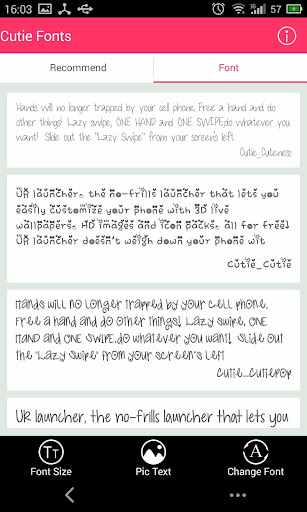 16:03
57
Cutie Fonts
Recommend
Font
Hands will no longer trapped by your cell phone. Free a hand and do
other things! Lazy swipe, ONE HAND and ONE SWIPE,do whatever you
want! Slide out the "Lazy Swipe" from your screen's left
Cutie_Cuteness
UR launcher, the no-frills launcher that lets you
easily customize your phone with 3D live
wallpapers, HD images and icon packs, all for free!
UR launcher doesn't weigh down your phone wit
Cutie_Cutie
Hands will no longer trapped by your cell phone.
Free a hand and do other things! Lazy swipe, ONE
HAND and ONE SWIPE,do whatever you want! Slide out
the "Lazy Swipe" from your screen's left
Cutie_CutiePop
UR launcher, the no-frills launcher that lets you
Font Size
Pic Text
Change Font